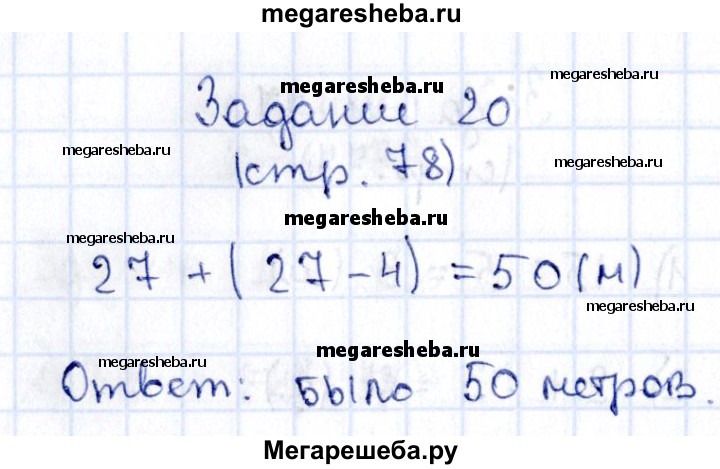 megaresheba.ru
megaresheba.ru
megaresheba.ru
Задание 20
megaresheba.ru
megaresheba.ru
(стр. 78)
megaresheba.ru
megaresheba.ru
27 + (27 - 4) = 50 (м)
megaresheba.ru
megaresheba.ru
megaresheba.ru
Ответ: было 50 метров.
Мегарешеба.ру